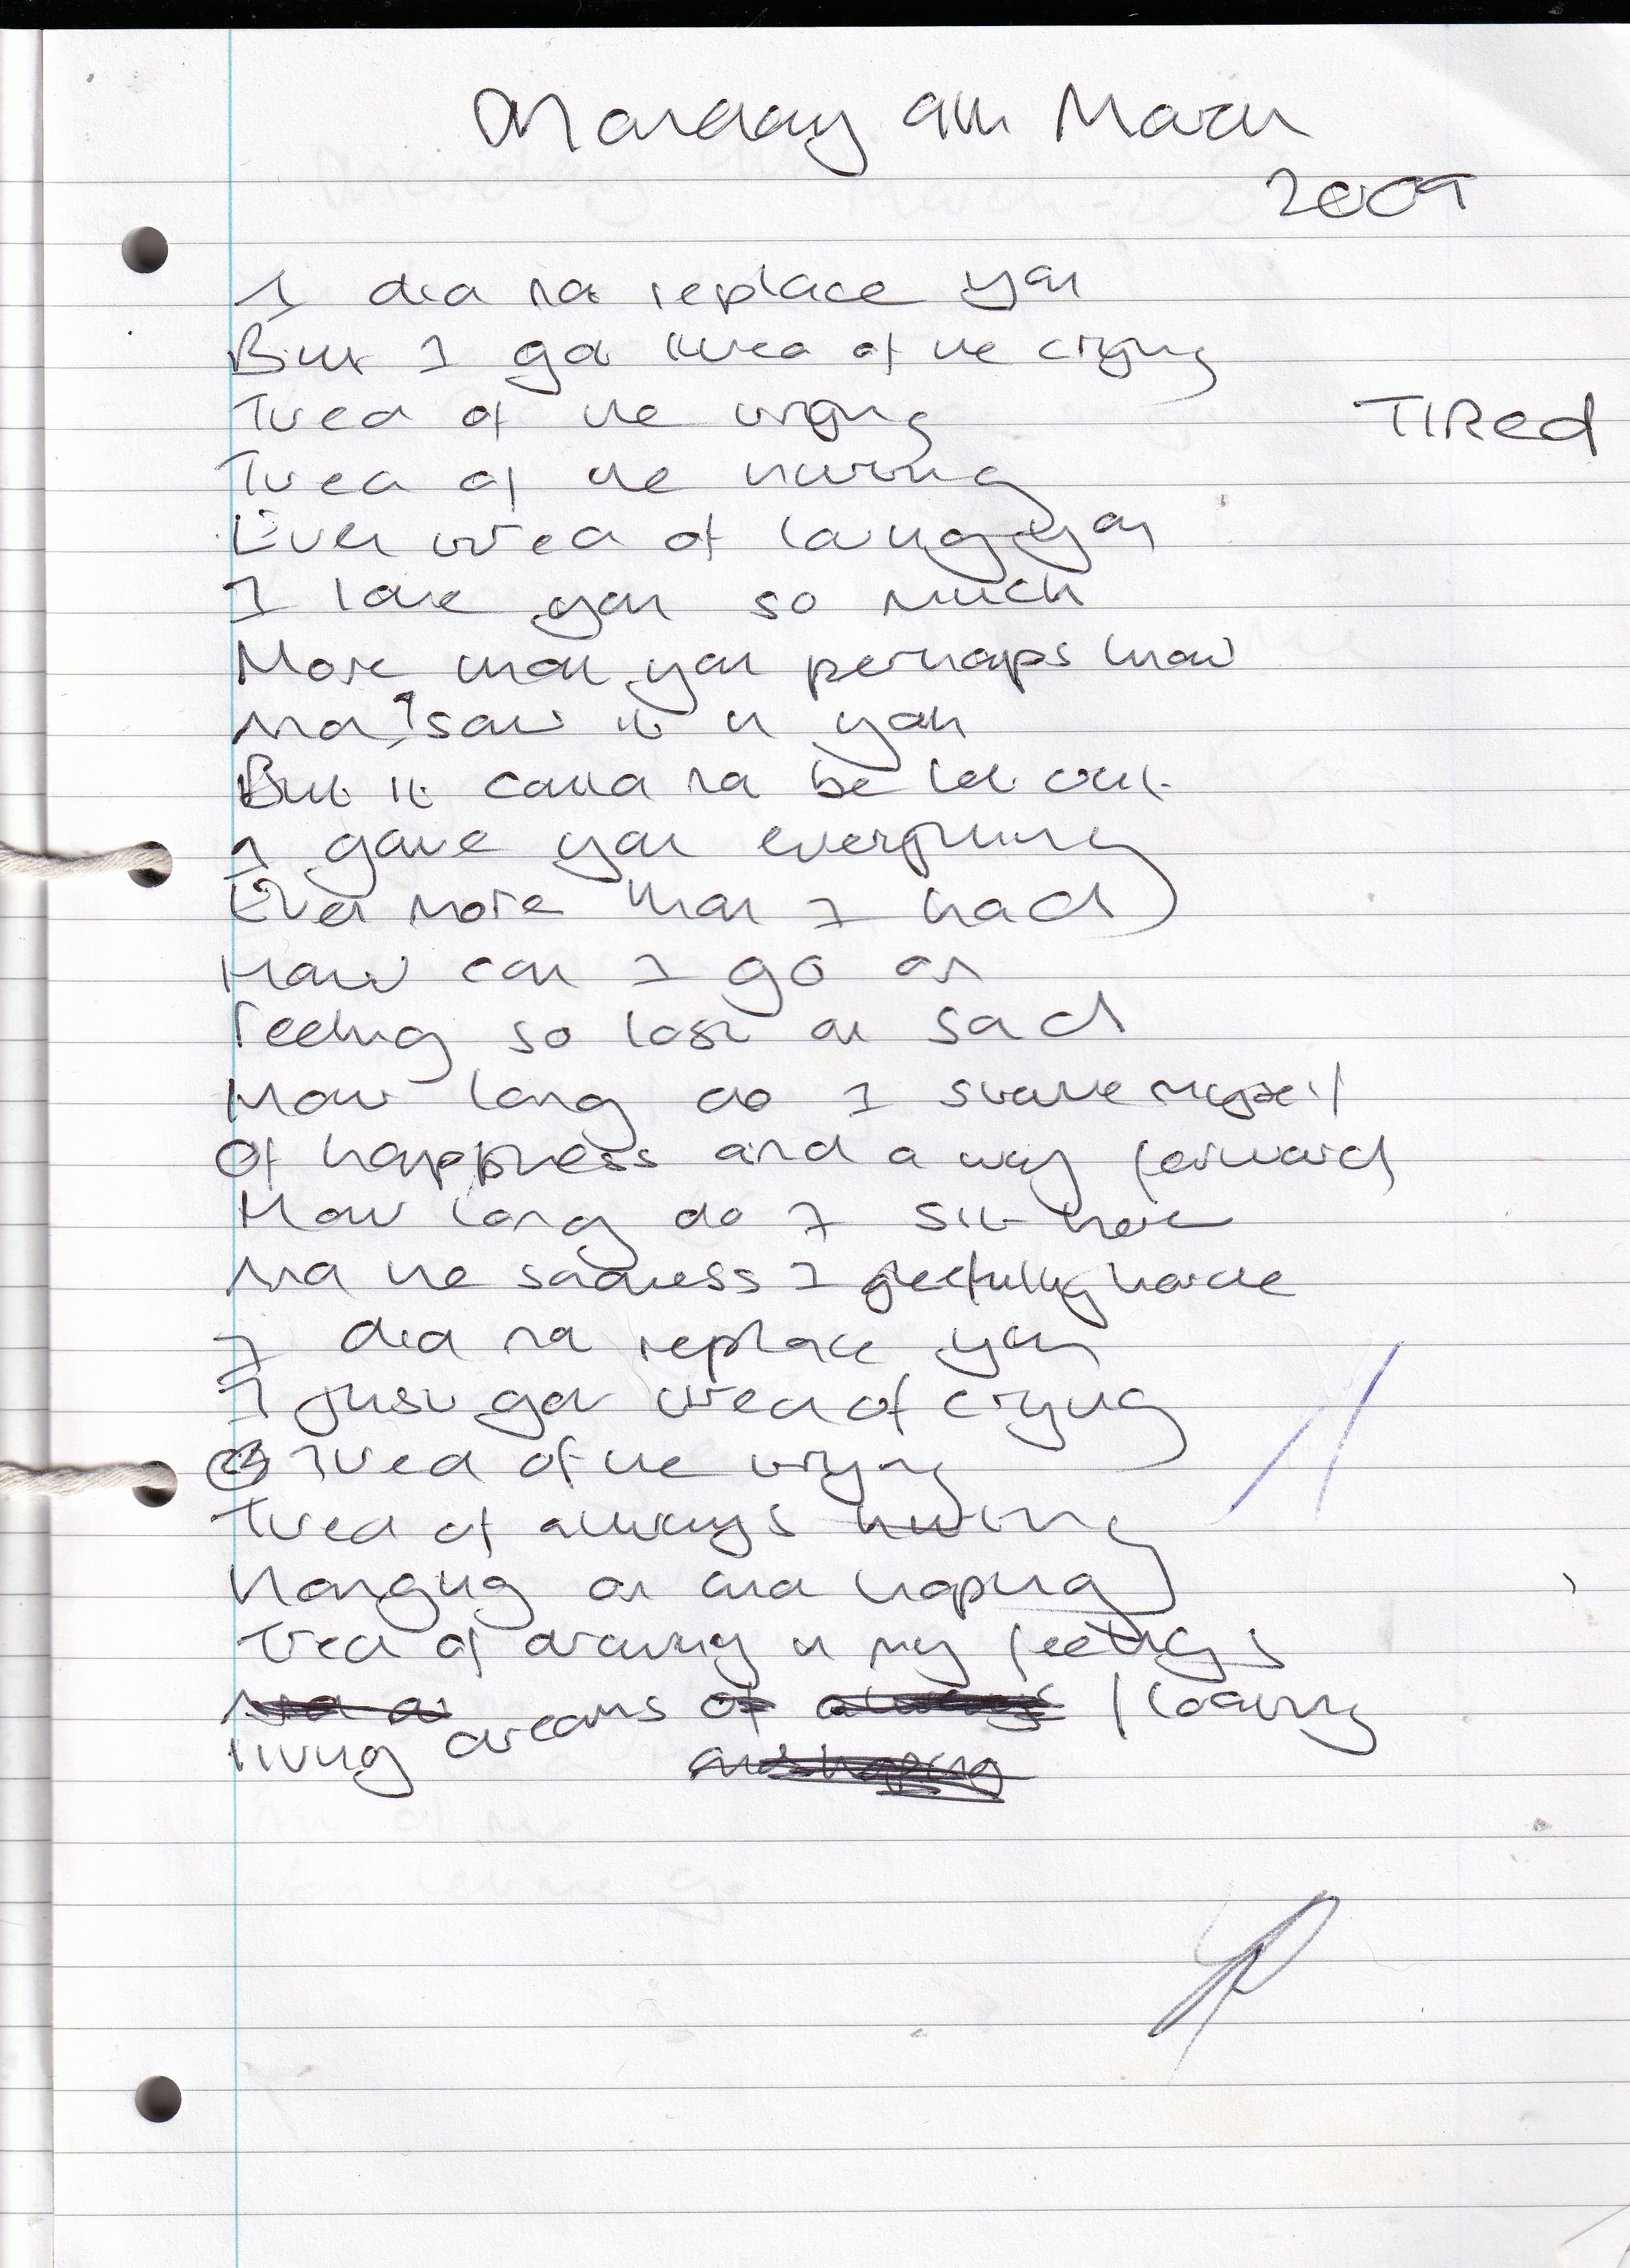 Monday 9th March
2009
I did not replace you
But I got tired of the crying
Tired of the trying
TIRed
Tired of the hurting
Even tired of loving you
I love you so much
More than you perhaps know
And I saw it in you
But it could not be let out.
I gave you everything
Even more than I had
How can I go on
Feeling so lost an sad
How long do I starve myself
Of happiness and a way forward
How long do I sit here
And the sadness I have
I did not replace you
I just got tired of crying
Tired of the trying
Tired of always hurting
Hanging on and hoping
Tired of drowning in my feelings
dreams of always floating
living
and hoping